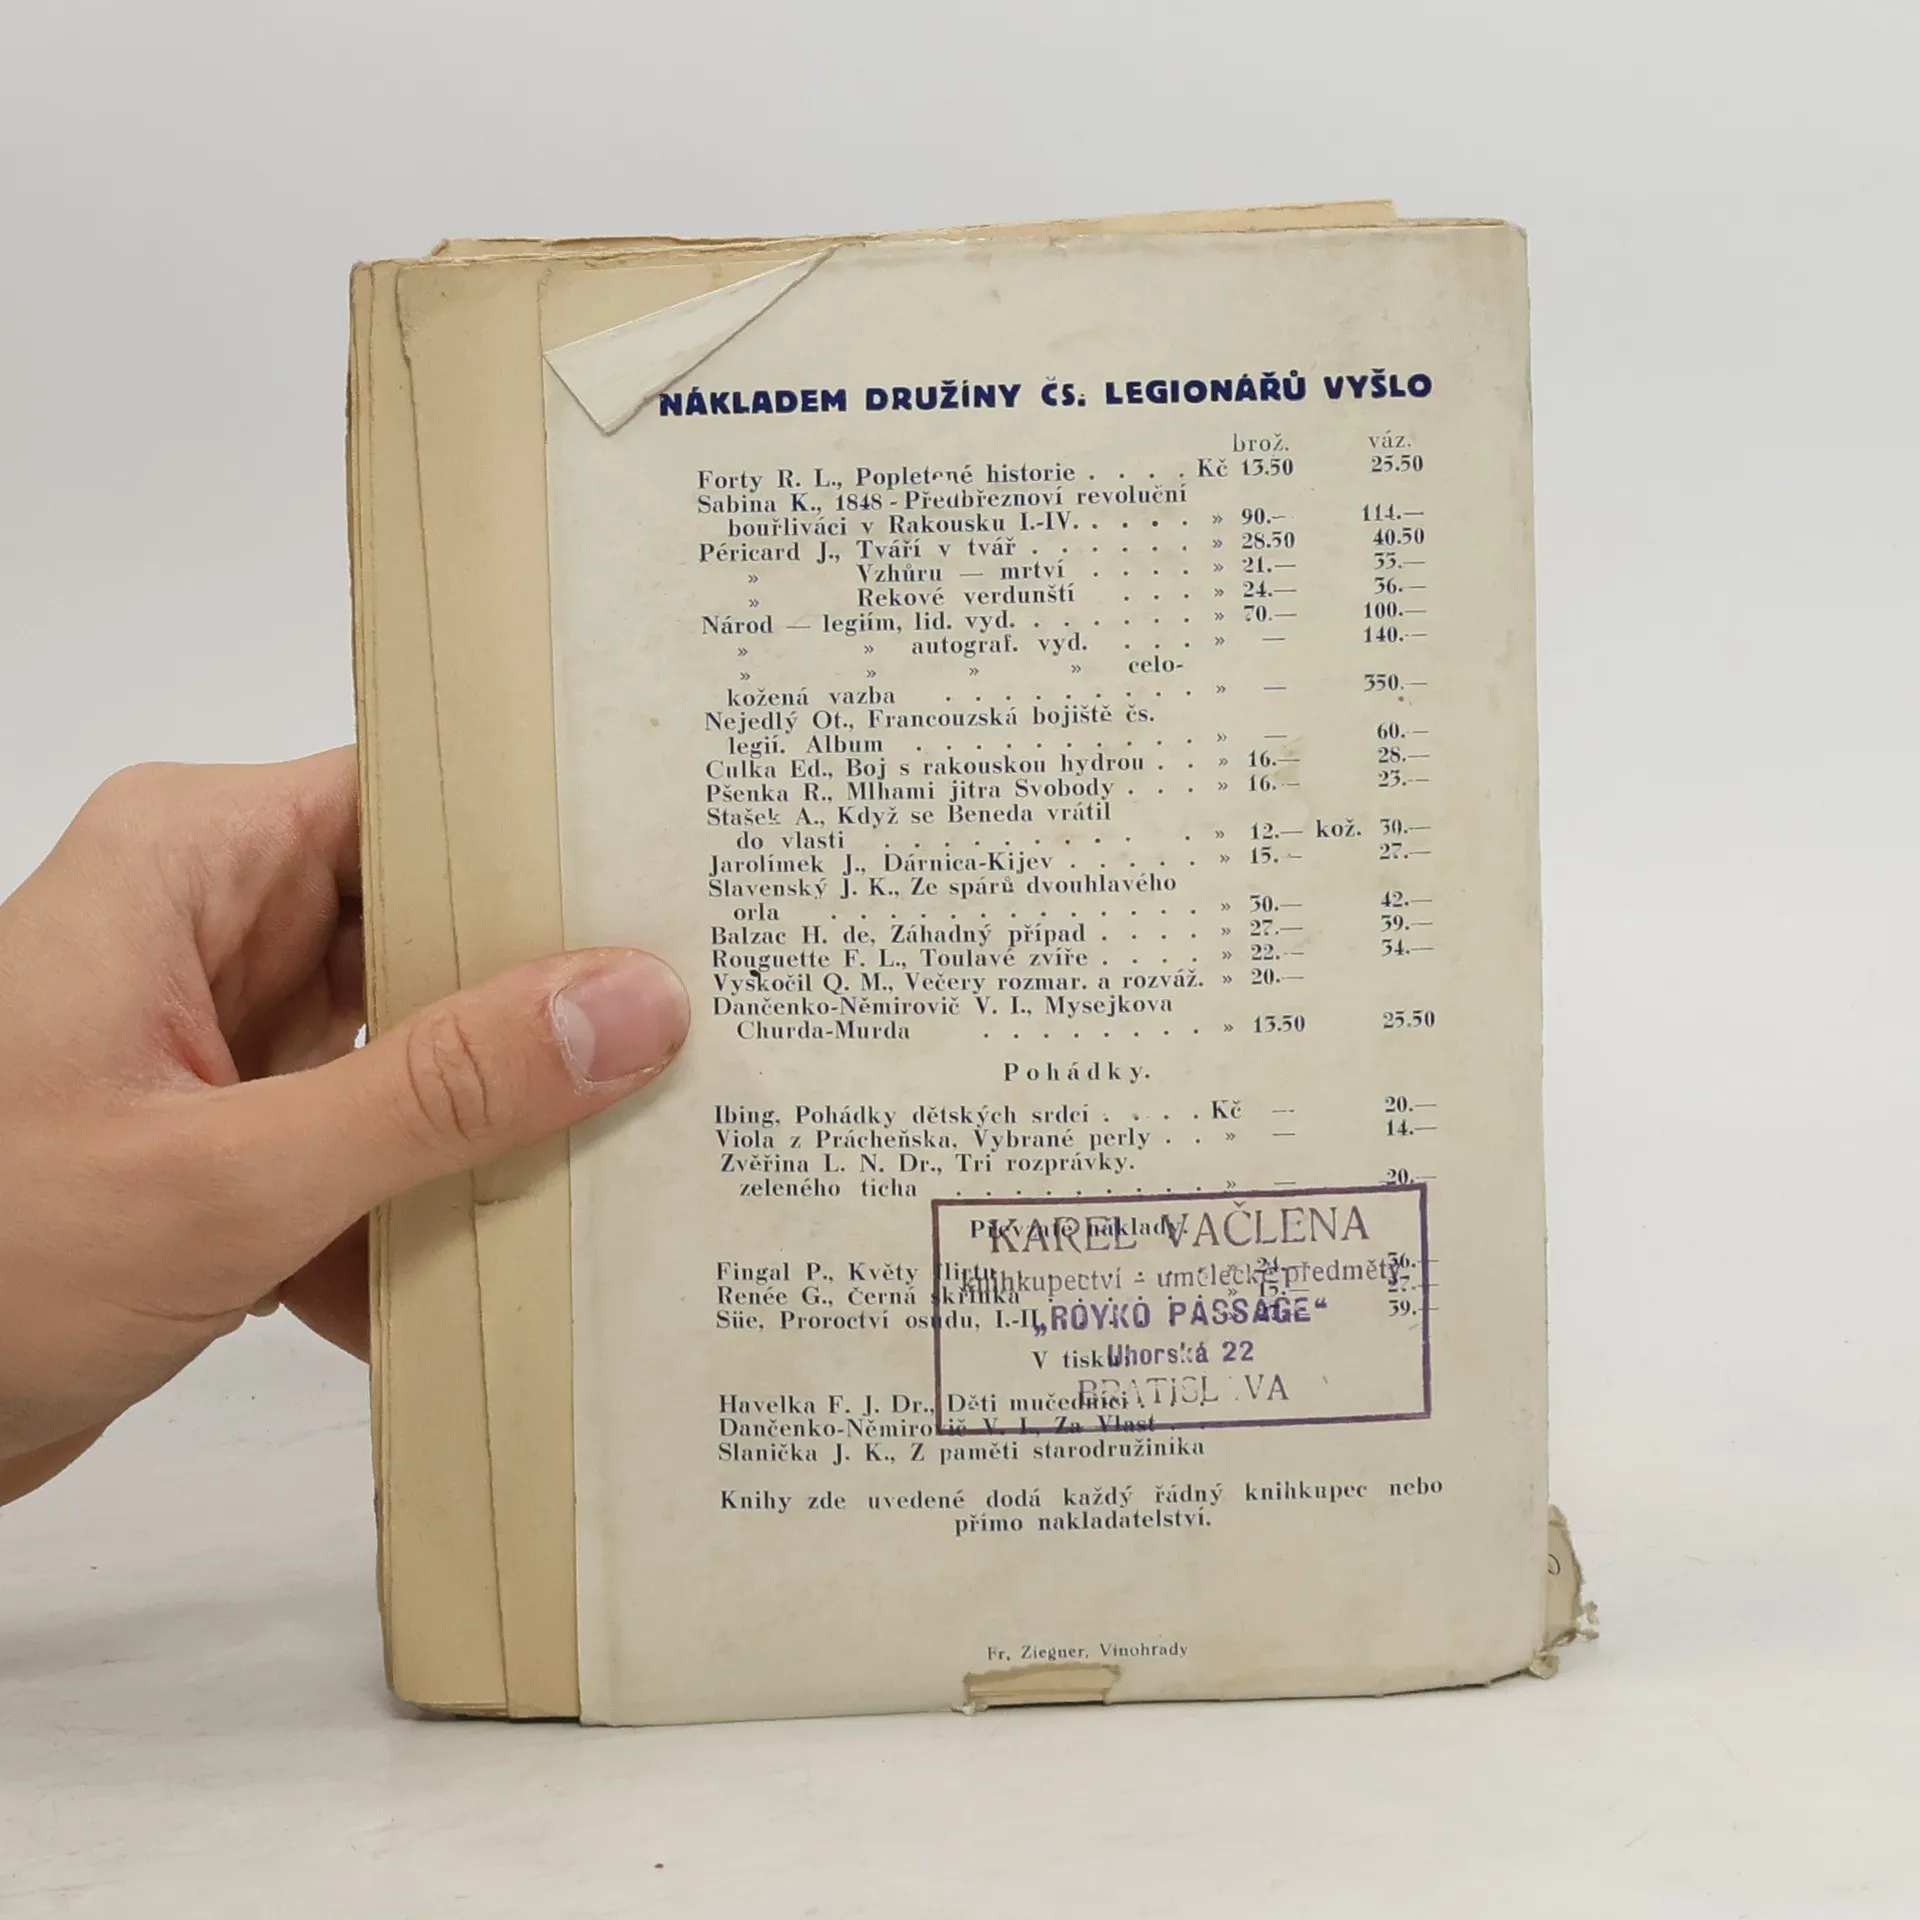 NÁKLADEM DRUŽÍNY ČS. LEGIONÁŘŮ VYŠLO
brož. váz.
Forty R. L., Popletené historie . . . . Kč 13.50 25.50
Sabina K., 1848 - Předbřeznoví revoluční
bouřliváci v Rakousku I.-IV. . . . . » 90.— 114.—
Péricard J., Tváří v tvář . . . . . . » 28.50 40.50
» Vzhůru — mrtví . . . . » 21.— 33.—
» Rekové verdunští . . . » 24.— 36.—
Národ — legiím, lid. vyd. . . . . . . » 70.— 100.—
» » autograf. vyd. . . . » — 140.—
» » » » celo-
kožená vazba . . . . . . . . . » — 350.—
Nejedlý Ot., Francouzská bojiště čs.
legií. Album . . . . . . . . . . » — 60.—
Culka Ed., Boj s rakouskou hydrou . . » 16.— 28.—
Pšenka R., Mlhami jitra Svobody . . . » 16.— 23.—
Stašek A., Když se Beneda vrátil
do vlasti . . . . . . . . . . » 12.— kož. 30.—
Jarolímek J., Dárnica-Kijev . . . . . » 15.— 27.—
Slavenský J. K., Ze spárů dvouhlavého
orla . . . . . . . . . . . . . » 30.— 42.—
Balzac H. de, Záhadný případ . . . . » 27.— 39.—
Rouguette F. L., Toulavé zvíře . . . . » 22.— 34.—
Vyskočil Q. M., Večery rozmar. a rozváž. » 20.—
Dančenko-Němirovič V. I., Mysejkova
Churda-Murda . . . . . . . . » 13.50 25.50
Pohádky.
Ibing, Pohádky dětských srdcí . . . . Kč — 20.—
Viola z Prácheňska, Vybrané perly . . » — 14.—
Zvěřina L. N. Dr., Tri rozprávky.
zeleného ticha . . . . . . . . . » — 20.—
Převzaté náklady.
Fingal P., Květy flirtu . . . . . » 24.— 36.—
Renée G., Černá skřínka . . . . . » 15.— 27.—
Süe, Proroctví osudu, I.-II. 39.—
V tisku:
Havelka F. J. Dr., Děti mučedníci . . .
Dančenko-Němirovič V. I., Za Vlast . .
Slanička J. K., Z paměti starodružiníka
KAREL VAČLENA
knihkupectví - umělecké předměty
„ROYKO PASSAGE“
Uhorská 22
BRATISLAVA
Knihy zde uvedené dodá každý řádný knihkupec nebo
přímo nakladatelství.
Fr. Ziegner, Vinohrady